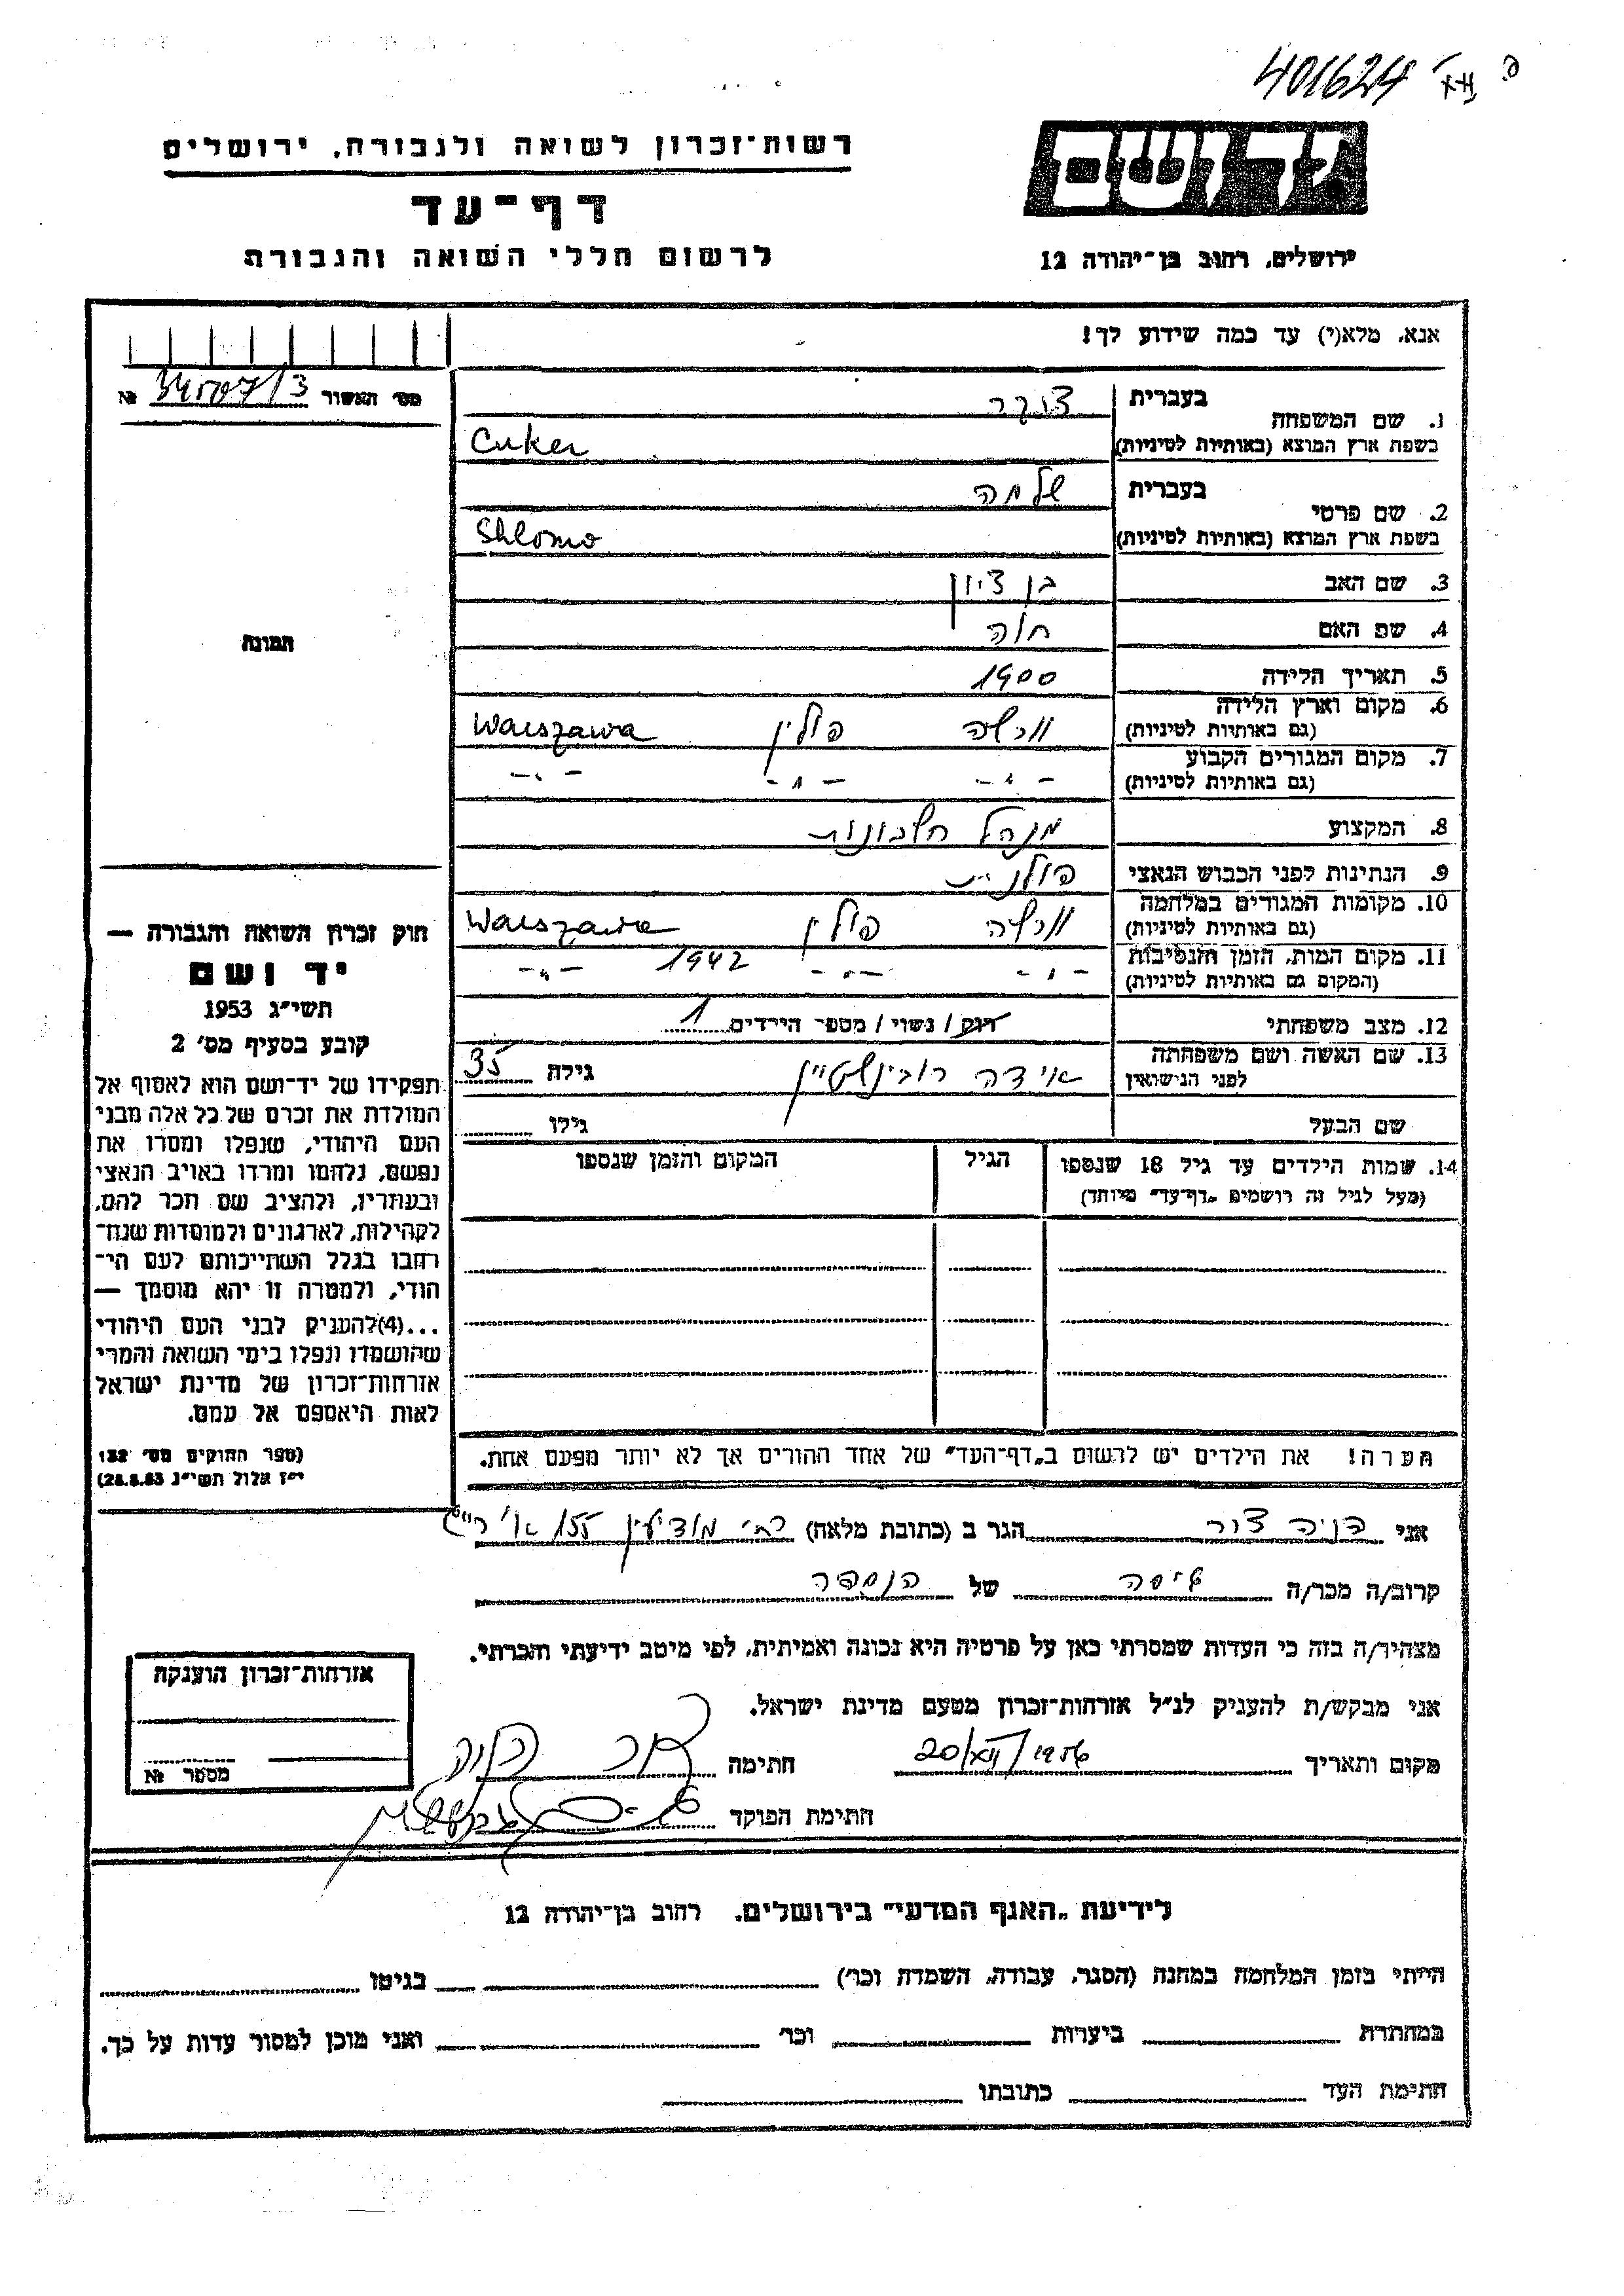 401624
יד ושם
ירושלים, רחוב בן־יהודה 12
רשות־זכרון לשואה ולגבורה, ירושלים
דף־עד
לרשום חללי השואה והגבורה
אנא, מלא(י) עד כמה שידוע לך!
מס' האשור №
1. שם המשפחה בעברית צוקר
בשפת ארץ המוצא (באותיות לטיניות) Cuker
2. שם פרטי בעברית שלמה
בשפת ארץ המוצא (באותיות לטיניות) Shlomo
3. שם האב בן ציון
4. שם האם חוה
5. תאריך הלידה 1900
6. מקום וארץ הלידה (גם באותיות לטיניות) ורשה פולין Warszawa
7. מקום המגורים הקבוע (גם באותיות לטיניות) -"- -"- -"-
8. המקצוע מנהל חשבונות
9. הנתינות לפני הכבוש הנאצי פולנית
10. מקומות המגורים במלחמה (גם באותיות לטיניות) ורשה פולין Warszawa
11. מקום המות, הזמן והנסיבות (המקום גם באותיות לטיניות) -"- -"- 1942 -"-
12. מצב משפחתי רווק / נשוי / מספר הילדים 1
13. שם האשה ושם משפחתה לפני הנישואין אידה רובינשטיין גילה 35
שם הבעל גילו
14. שמות הילדים עד גיל 18 שנספו הגיל המקום והזמן שנספו
(מעל לגיל זה רושמים „דף־עד" מיוחד)
הערה! את הילדים יש לרשום ב„דף־העד" של אחד ההורים אך לא יותר מפעם אחת.
תמונה
חוק זכרון השואה והגבורה —
יד ושם
תשי"ג 1953
קובע בסעיף מס' 2
תפקידו של יד־ושם הוא לאסוף אל
המולדת את זכרם של כל אלה מבני
העם היהודי, שנפלו ומסרו את
נפשם, נלחמו ומרדו באויב הנאצי
ובעוזריו, ולהציב שם וזכר להם,
לקהילות, לארגונים ולמוסדות שנח־
רבו בגלל השתייכותם לעם הי־
הודי, ולמטרה זו יהא מוסמך —
...(4)להעניק לבני העם היהודי
שהושמדו ונפלו בימי השואה והמרי
אזרחות־זכרון של מדינת ישראל
לאות היאספם אל עמם.
(ספר החוקים מס' 132
י"ז אלול תשי"ג 28.8.53)
אני צור הגר ב (כתובת מלאה) מודיעין 155
קרוב/ה מכר/ה גיסה של הנספה
מצהיר/ה בזה כי העדות שמסרתי כאן על פרטיה היא נכונה ואמיתית, לפי מיטב ידיעתי והכרתי.
אני מבקש/ת להעניק לנ"ל אזרחות־זכרון מטעם מדינת ישראל.
מקום ותאריך 20/XII/1956 חתימה
חתימת הפוקד
אזרחות־זכרון הוענקה
מספר №
לידיעת „האגף המדעי" בירושלים, רחוב בן־יהודה 12
הייתי בזמן המלחמה במחנה (הסגר, עבודה, השמדה וכו') בגיטו
במחתרת ביערות וכו' ואני מוכן למסור עדות על כך.
חתימת העד כתובתו